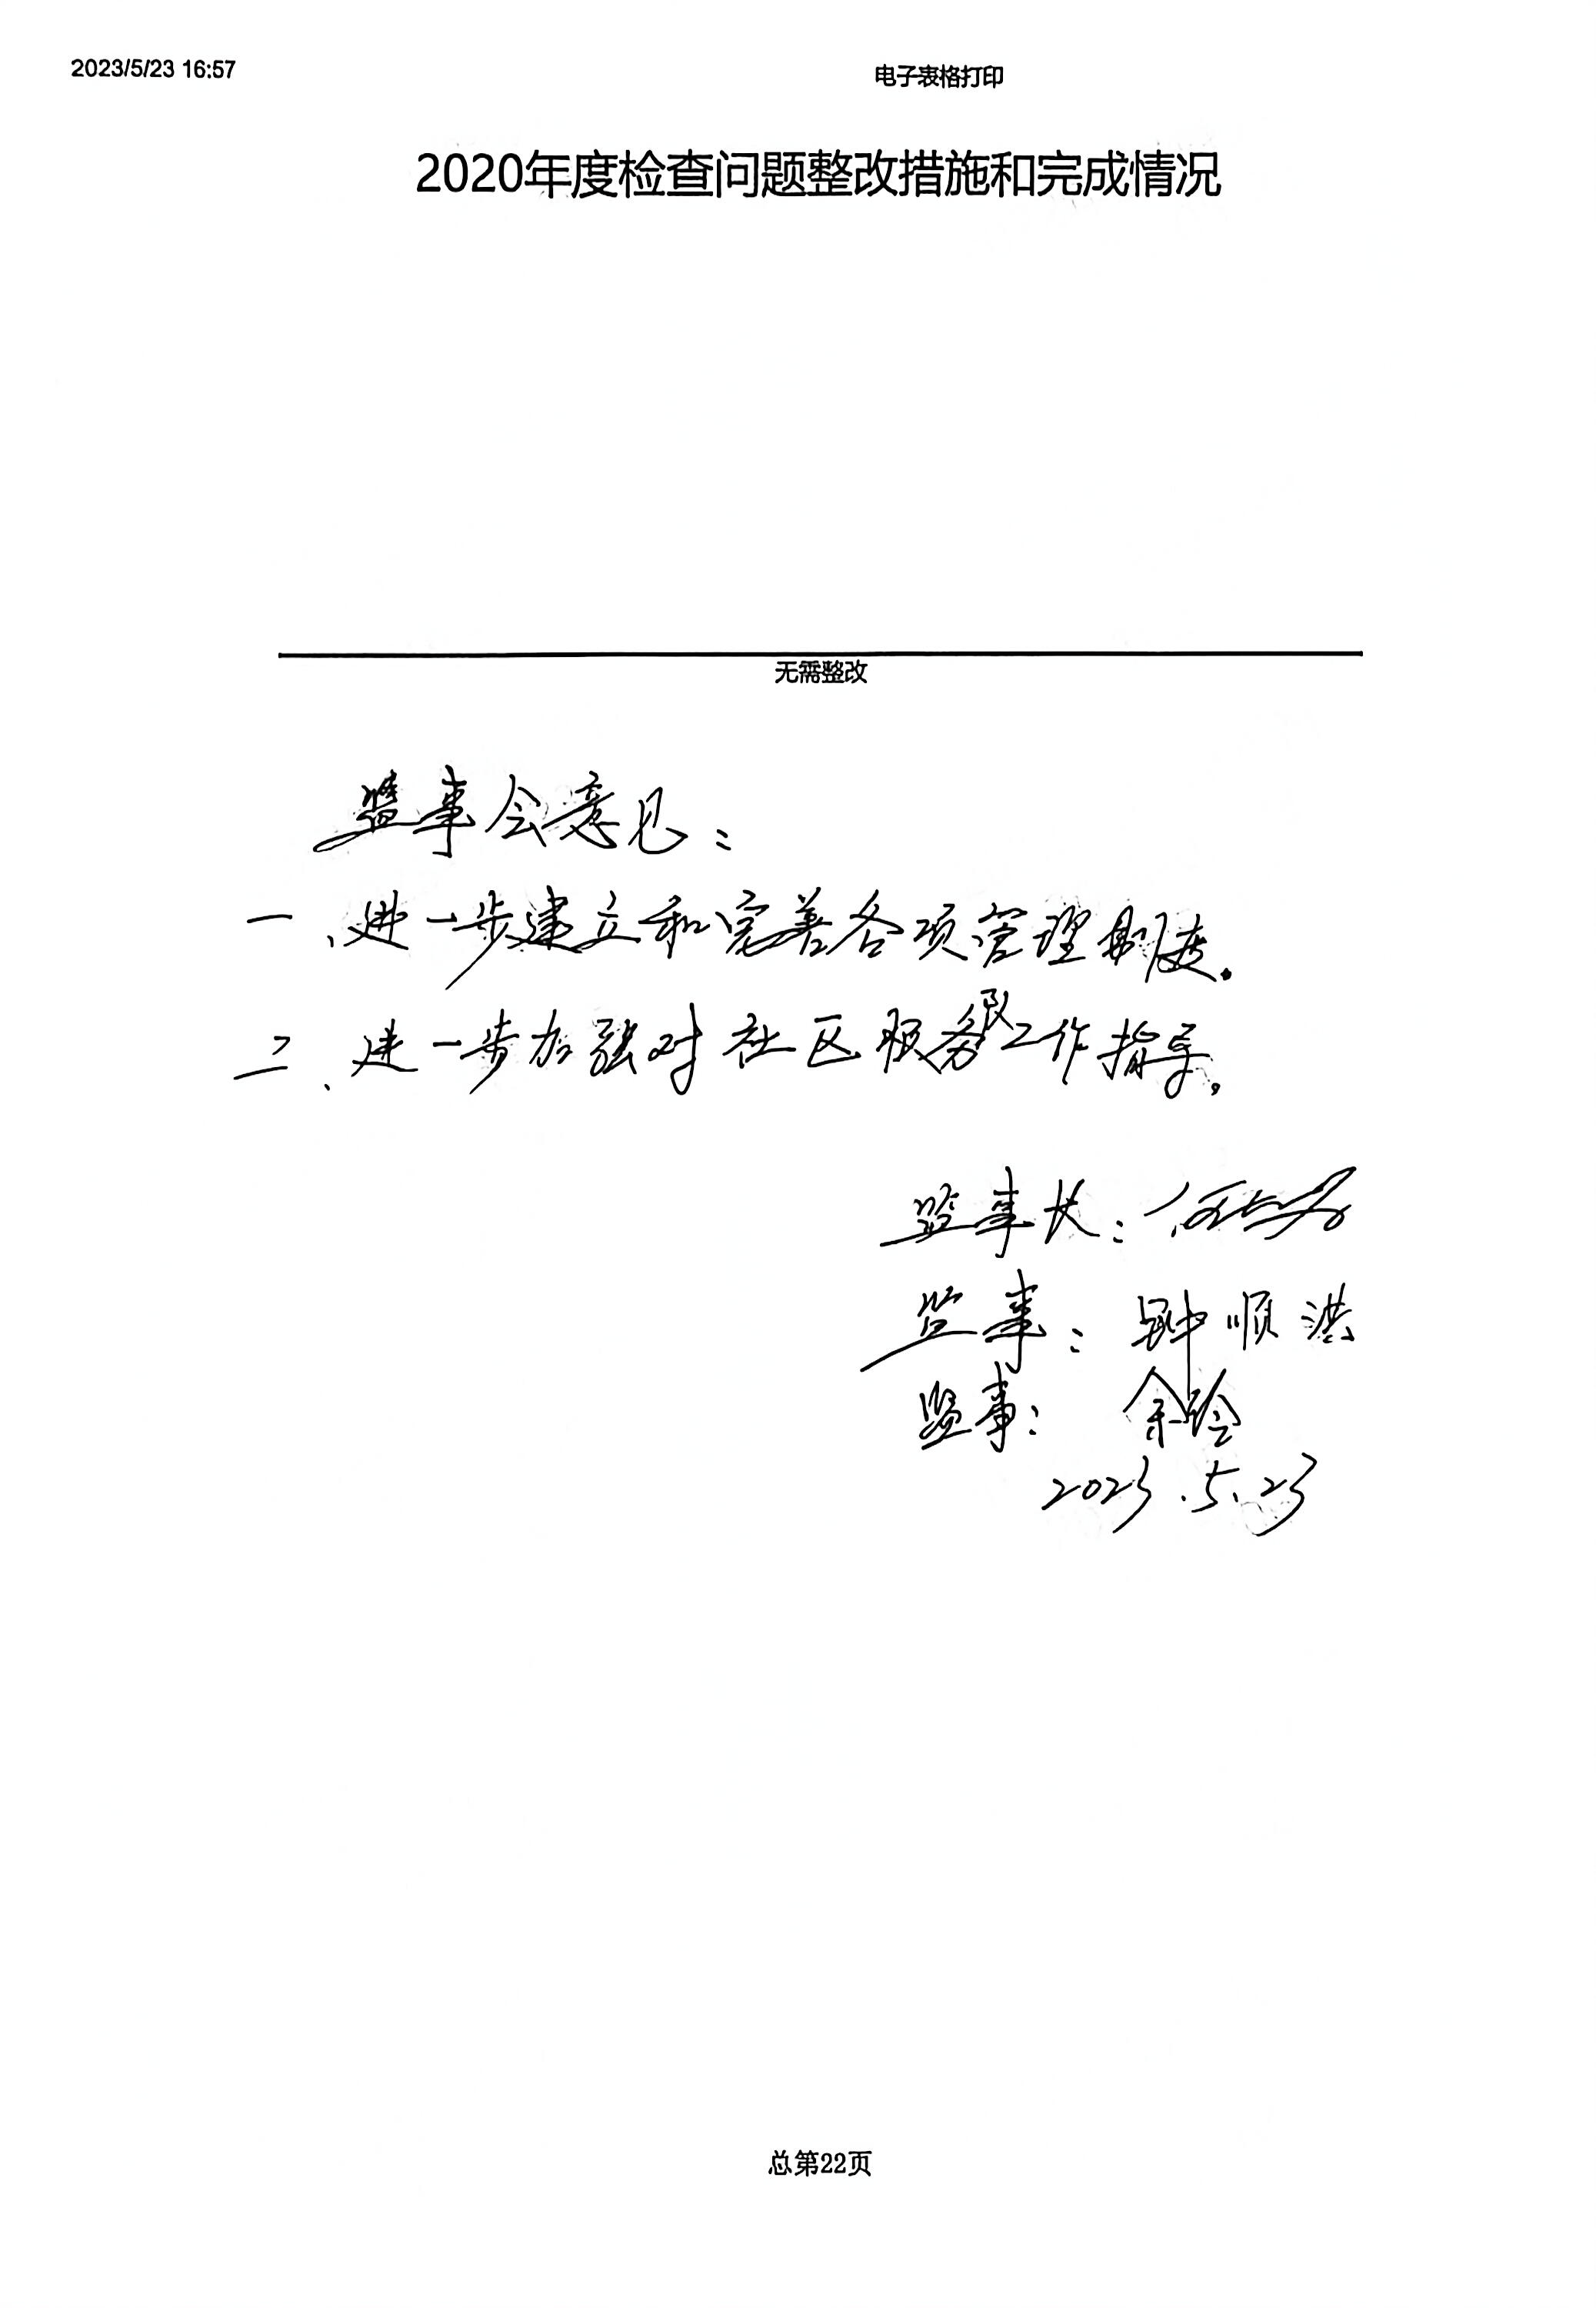 2023/5/23 16:57
电子表格打印
2020年度检查问题整改措施和完成情况
无需整改
监事会意见：
一、进一步建立和完善各项管理制度。
二、进一步加强对社区服务及工作指导。
监事长：何
监事：钟顺洪
监事：余玲
2023.5.23
总第22页